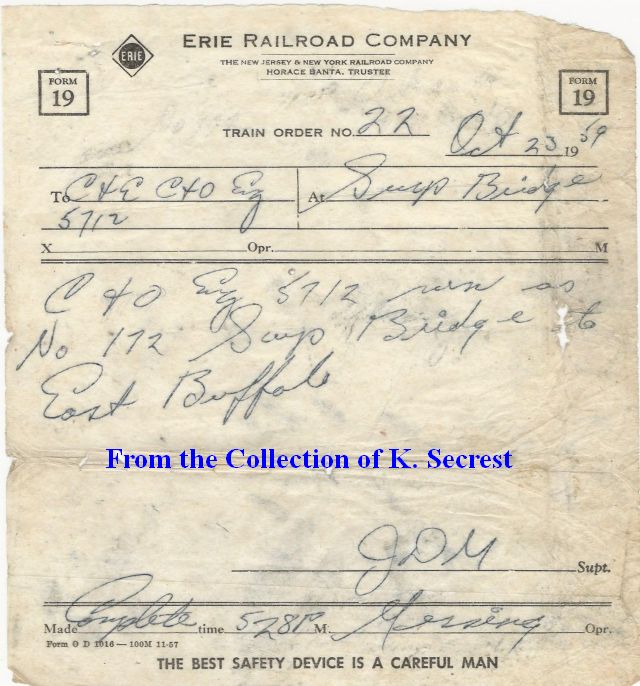 ERIE
ERIE RAILROAD COMPANY
THE NEW JERSEY & NEW YORK RAILROAD COMPANY
HORACE BANTA, TRUSTEE
FORM
19
FORM
19
TRAIN ORDER NO. 22 Oct 23 1959
To C&E C&O Eg At Susp Bridge
5712
X Opr. M
C&O Eg 5712 run as
No 172 Susp Bridge to
East Buffalo
From the Collection of K. Secrest
JDM Supt.
Made Complete time 528P M. Messing Opr.
Form O D 1016 — 100M 11-57
THE BEST SAFETY DEVICE IS A CAREFUL MAN